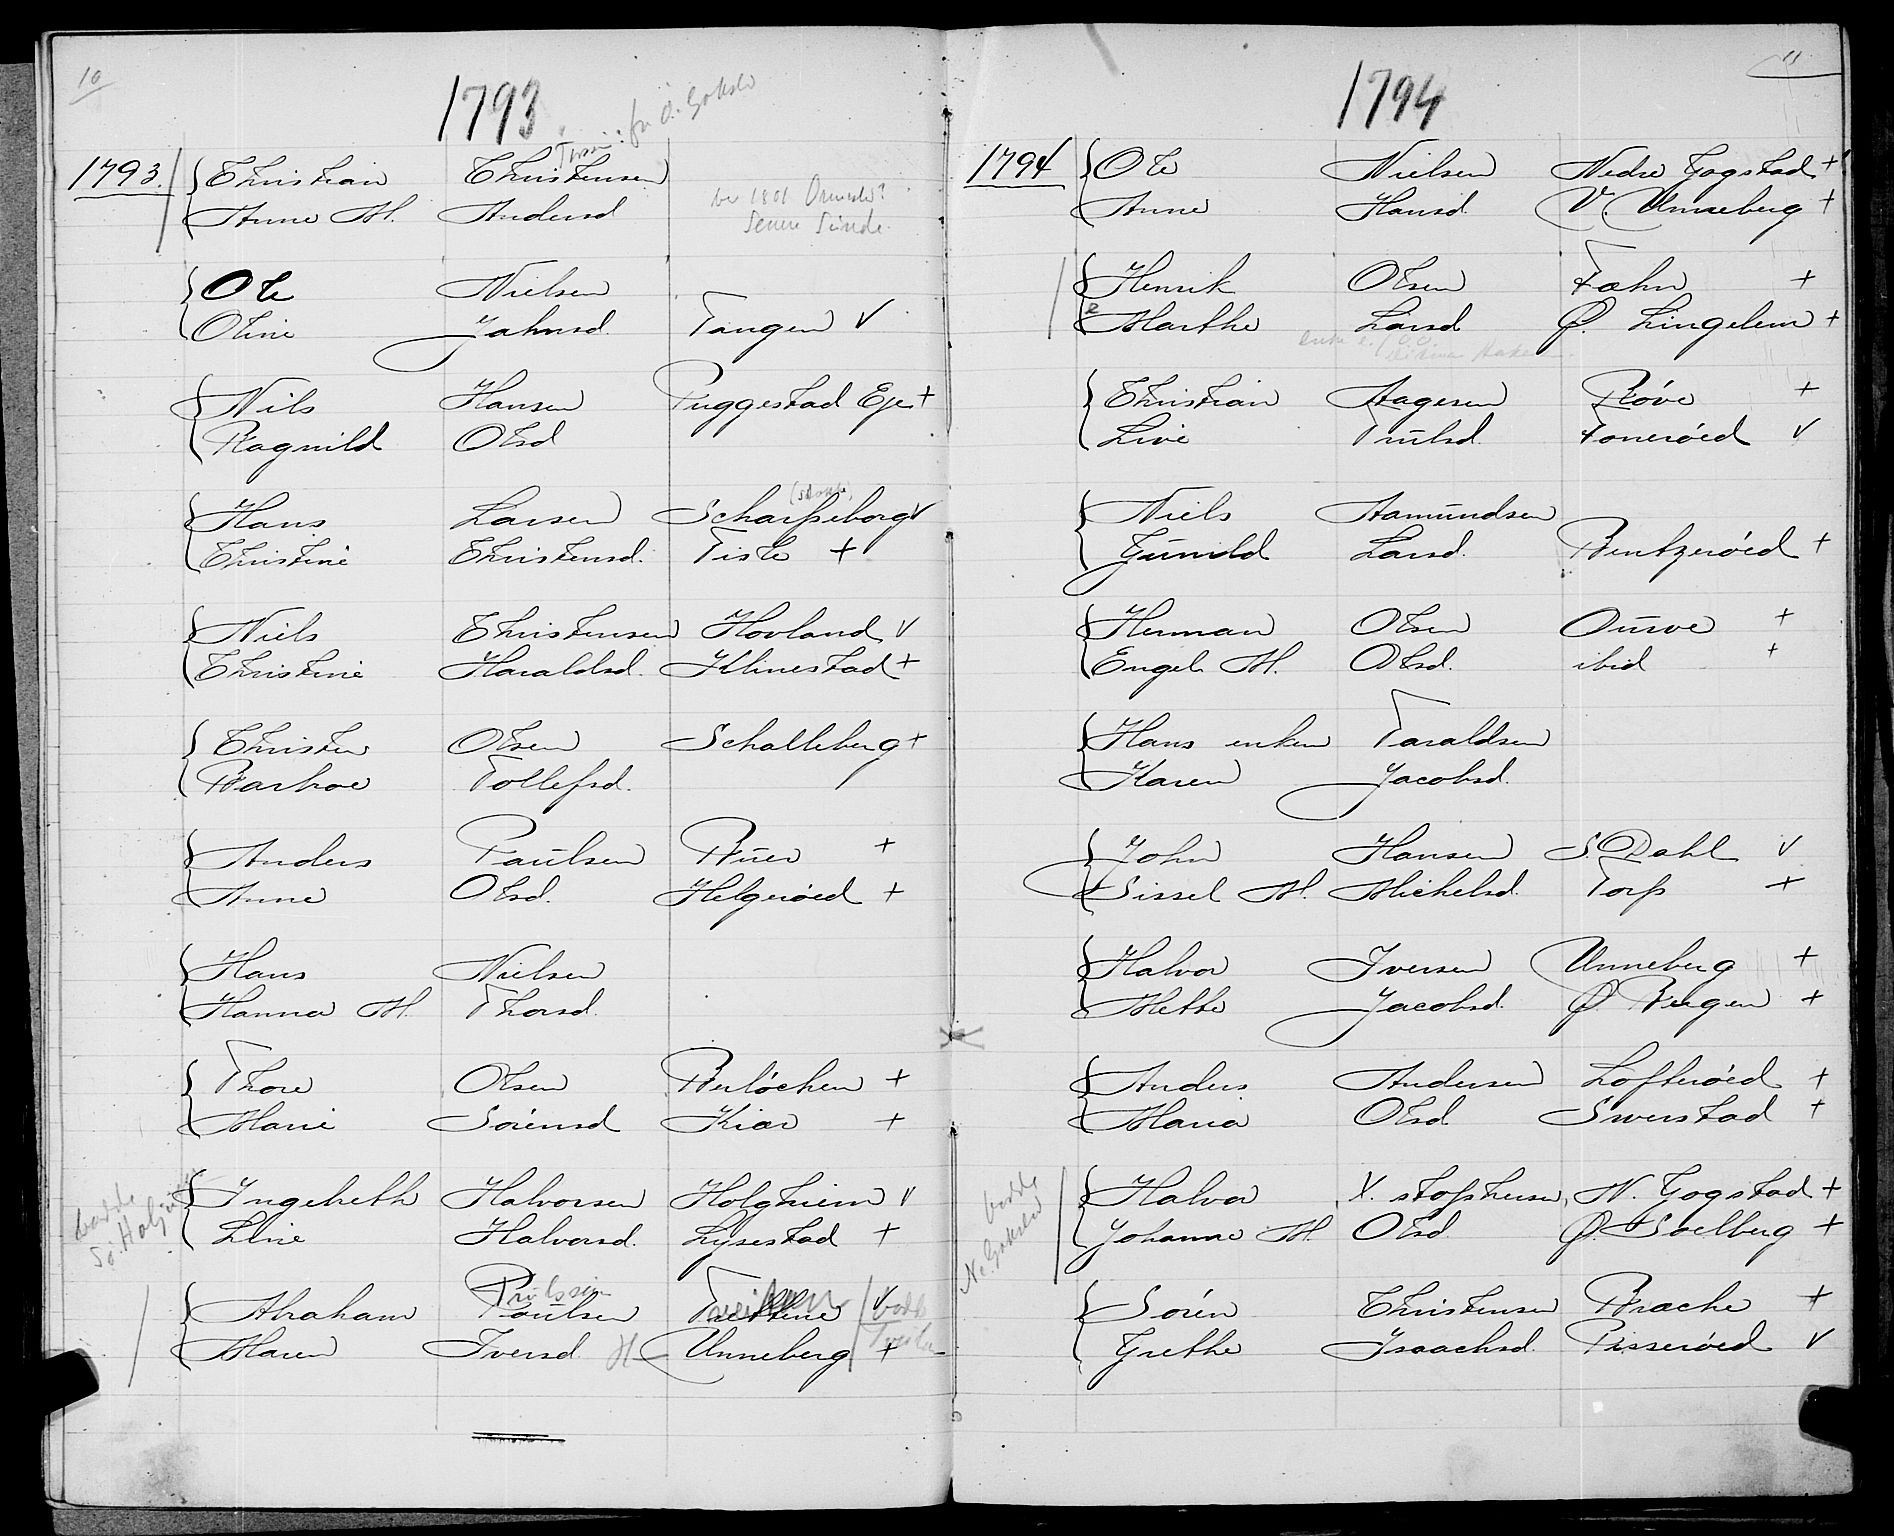 10
1793
fra Ö. Gokstad
1793. Christian Christensen
Anne M. Andersd
bor 1801
senere Sunde.
Ole Nielsen
Oline Jahnsd. Tangen V
Nils Hansen Puggestad Eje +
Ragnild Olsd
(Stokke)
Hans Larsen Scharpseborg V
Christine Christensd. Tiste +
Niels Christensen Hovland V
Christine Haraldsd. Klinestad +
Christen Olsen Schalleberg +
Barboe Tollefsd.
Anders Paulsen Buer +
Anne Olsd. Helgeröed +
Hans Nielsen
Hanna M. Thorsd.
Thore Olsen Berlöchen +
Marie Sörensd Kiær +
bodde
Sö. Holjem
Ingebreth Halvorsen Holghiem V
Line Halvorsd. Lysestad +
Pæulssön
Abraham Poulsen V bodde
Maren Iversd. Unneberg +
11
1794
1794 Ole Nielsen Nedre Gogstad +
Anne Hansd. V. Unneberg +
Henrik Olsen Fæhn +
2 Marthe Larsd Ø. Lingelem +
enke e.
Christian Aagesen Röve +
Live Trulsd. Foneröed V
Niels Aamundsen
Gunnild Larsd. Bentzeröed +
Herman Olsen Ourve +
Engel M. Olsd. ibid +
Hans enken Taraldsen
Karen Jacobsd.
John Hansen S. Dahl V
Sissel M. Michelsd. Torp +
Halvor Iversen Unneberg +
Methe Jacobsd. Ø. Bergen +
Anders Andersen Lofteröed +
Maria Olsd Sverstad +
bodde
Ne. Gokstad
Halvor X. stophersen, N. Gogstad +
Johanne M. Olsd Ø. Soelberg +
Sören Christensen Brache +
Grethe Isaachsd. Pisseröed V